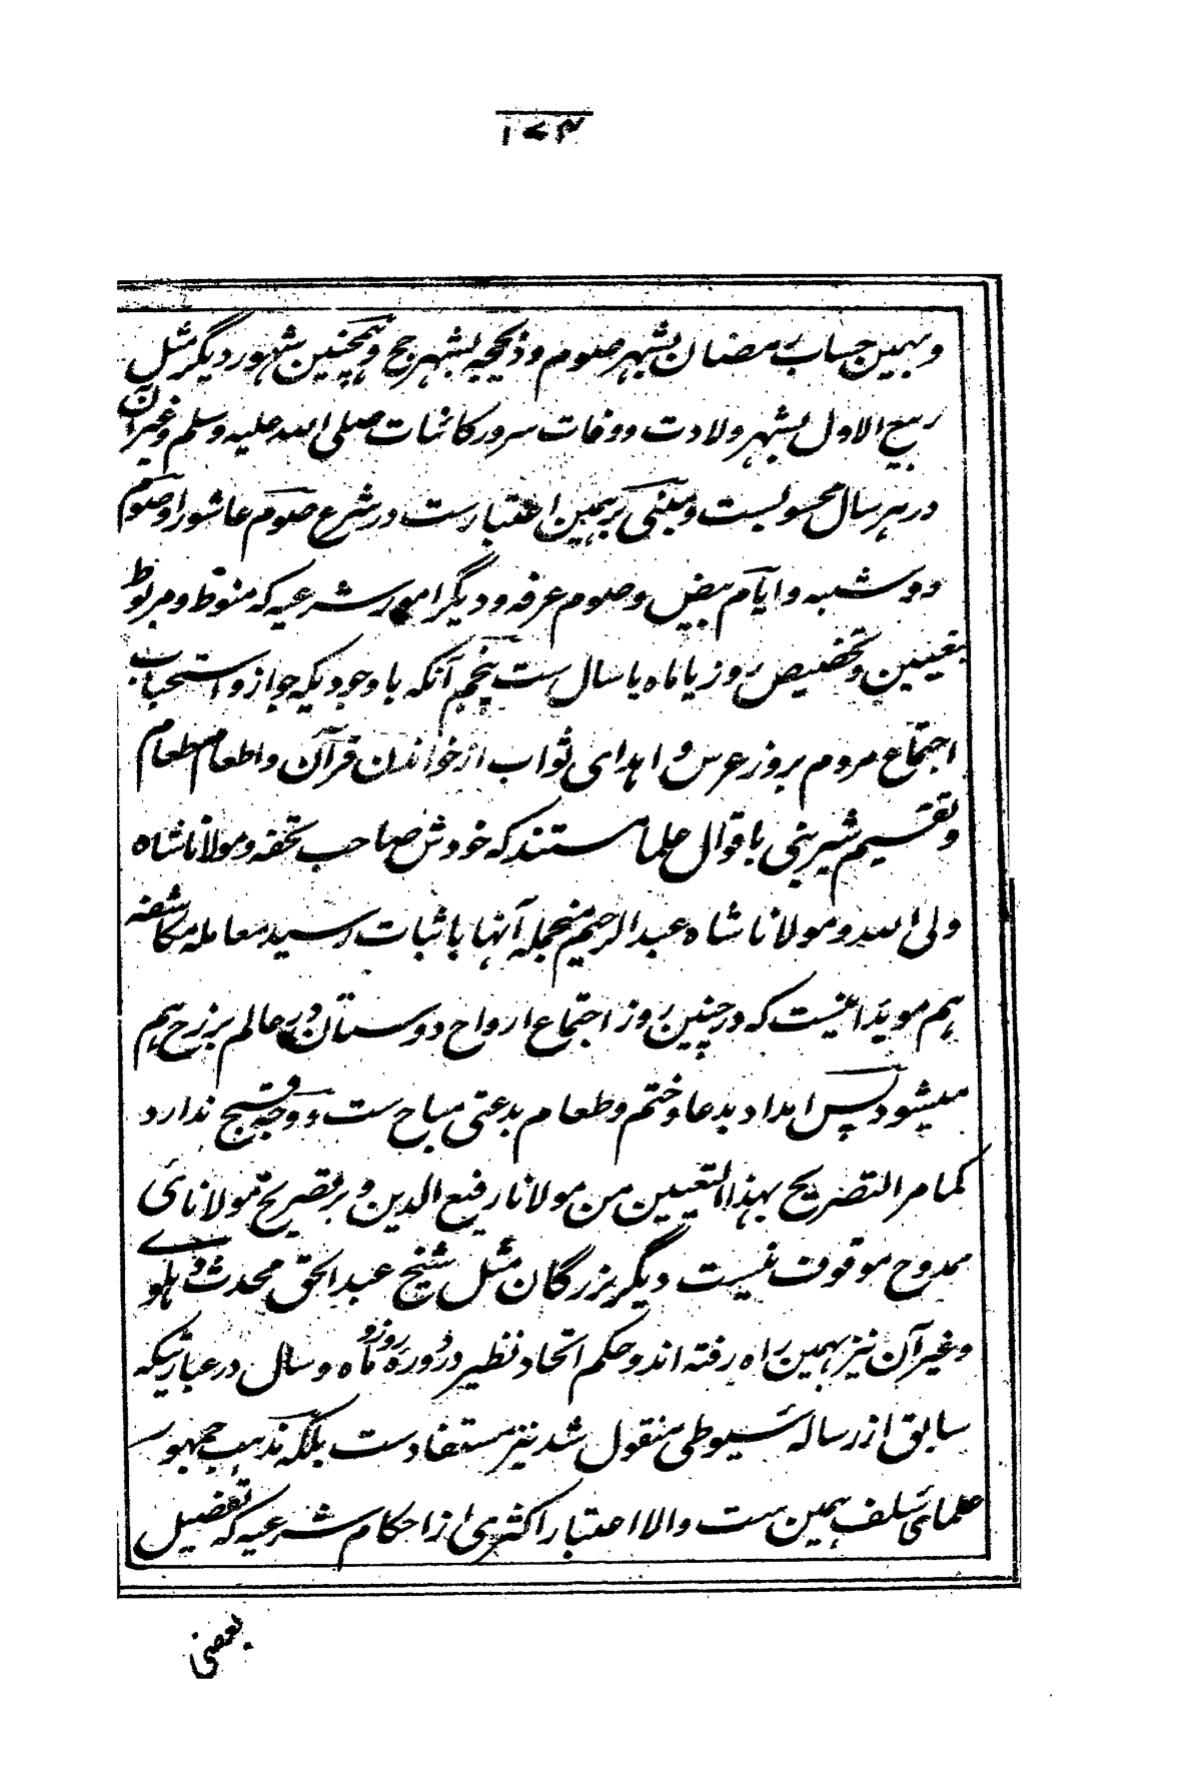 ۱۷۴
و بهمین حساب رمضان بشهر صوم و ذیحجه بشهر حج و همچنین شهور دیگر مثل
ربیع الاول بشهر ولادت و وفات سرور کائنات صلی الله علیه وسلم و غیر آن
در هر سال محسوبست و مبنی بر همین اعتبارست در شرع صوم عاشورا و صوم
دوشنبه و ایام بیض و صوم عرفه و دیگر امور شرعیه که منوط و مربوط
بتعیین و تخصیص روز یا ماه یا سال ست پنجم آنکه باوجودیکه جواز و استحباب
اجتماع مردم بروز عرس و اهدای ثواب از خواندن قرآن و اطعام طعام
و تقسیم شیرینی باقوال علما مستند که خودش صاحب تحفه و مولانا شاه
ولی الله و مولانا شاه عبد الرحیم منجمله آنها باثبات رسید معامله مکاشفه
هم موید اینست که در چنین روز اجتماع ارواح دوستان در عالم برزخ هم
میشود پس امداد بدعا و ختم و طعام بدعتی مباح ست و وجه قبح ندارد
کما مر التصریح بهذا التعیین من مولانا رفیع الدین و بر تصریح مولانای
ممدوح موقوف نیست دیگر بزرگان مثل شیخ عبد الحق محدث دهلوے
و غیر آن نیز بهمین راه رفته اند و حکم اتحاد نظیر در دورۀ روز و ماه و سال در عبارتیکه
سابق از رساله سیوطی منقول شد نیز مستفادست بلکه مذهب جمهور
علمای سلف همین ست والا اعتبار اکثری از احکام شرعیه که تفضیل
بعضی